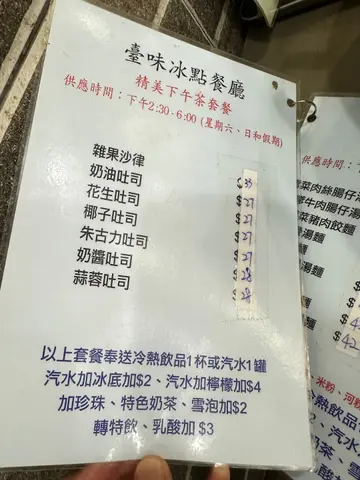 臺味冰點餐廳
精美下午茶套餐
供應時間：下午2:30-6:00 (星期六、日和假期)
雜果沙律 $ 35
奶油吐司 $ 27
花生吐司 $ 27
椰子吐司 $ 27
朱古力吐司 $ 27
奶醬吐司 $ 28
蒜蓉吐司 $ 28
以上套餐奉送冷熱飲品1杯或汽水1罐
汽水加冰底加$2、汽水加檸檬加$4
加珍珠、特色奶茶、雪泡加$2
轉特飲、乳酸加 $3
供應時間：
菜肉絲腸仔
牛肉腸仔湯
菜豬肉餃麵
湯麵
麵
$
$
$
$ 42
米粉、河粉
冷熱飲品
汽水加冰
加珍珠
轉